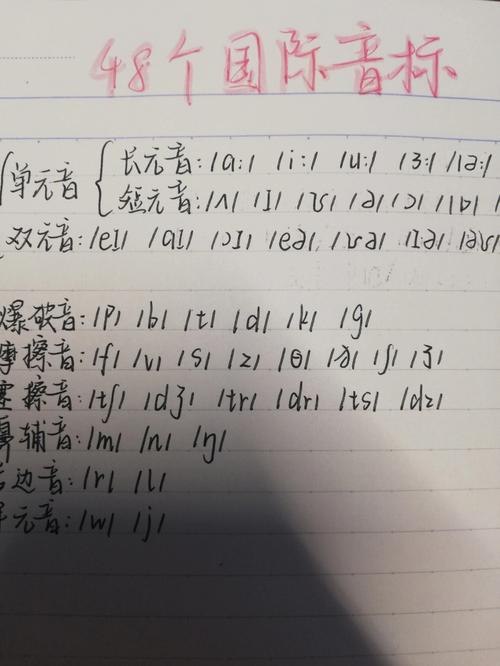 48个国际音标
单元音
长元音: /ɑː/ /iː/ /uː/ /ɜː/ /ɑː/
短元音: /ʌ/ /ɪ/ /ʊ/ /ə/ /ɔ/ /ɒ/
双元音: /eɪ/ /aɪ/ /ɔɪ/ /eə/ /ʊə/ /ɪə/ /əʊ/
爆破音: /p/ /b/ /t/ /d/ /k/ /g/
摩擦音: /f/ /v/ /s/ /z/ /θ/ /ð/ /ʃ/ /ʒ/
塞擦音: /tʃ/ /dʒ/ /tr/ /dr/ /ts/ /dz/
鼻辅音: /m/ /n/ /ŋ/
边音: /r/ /l/
元音: /w/ /j/